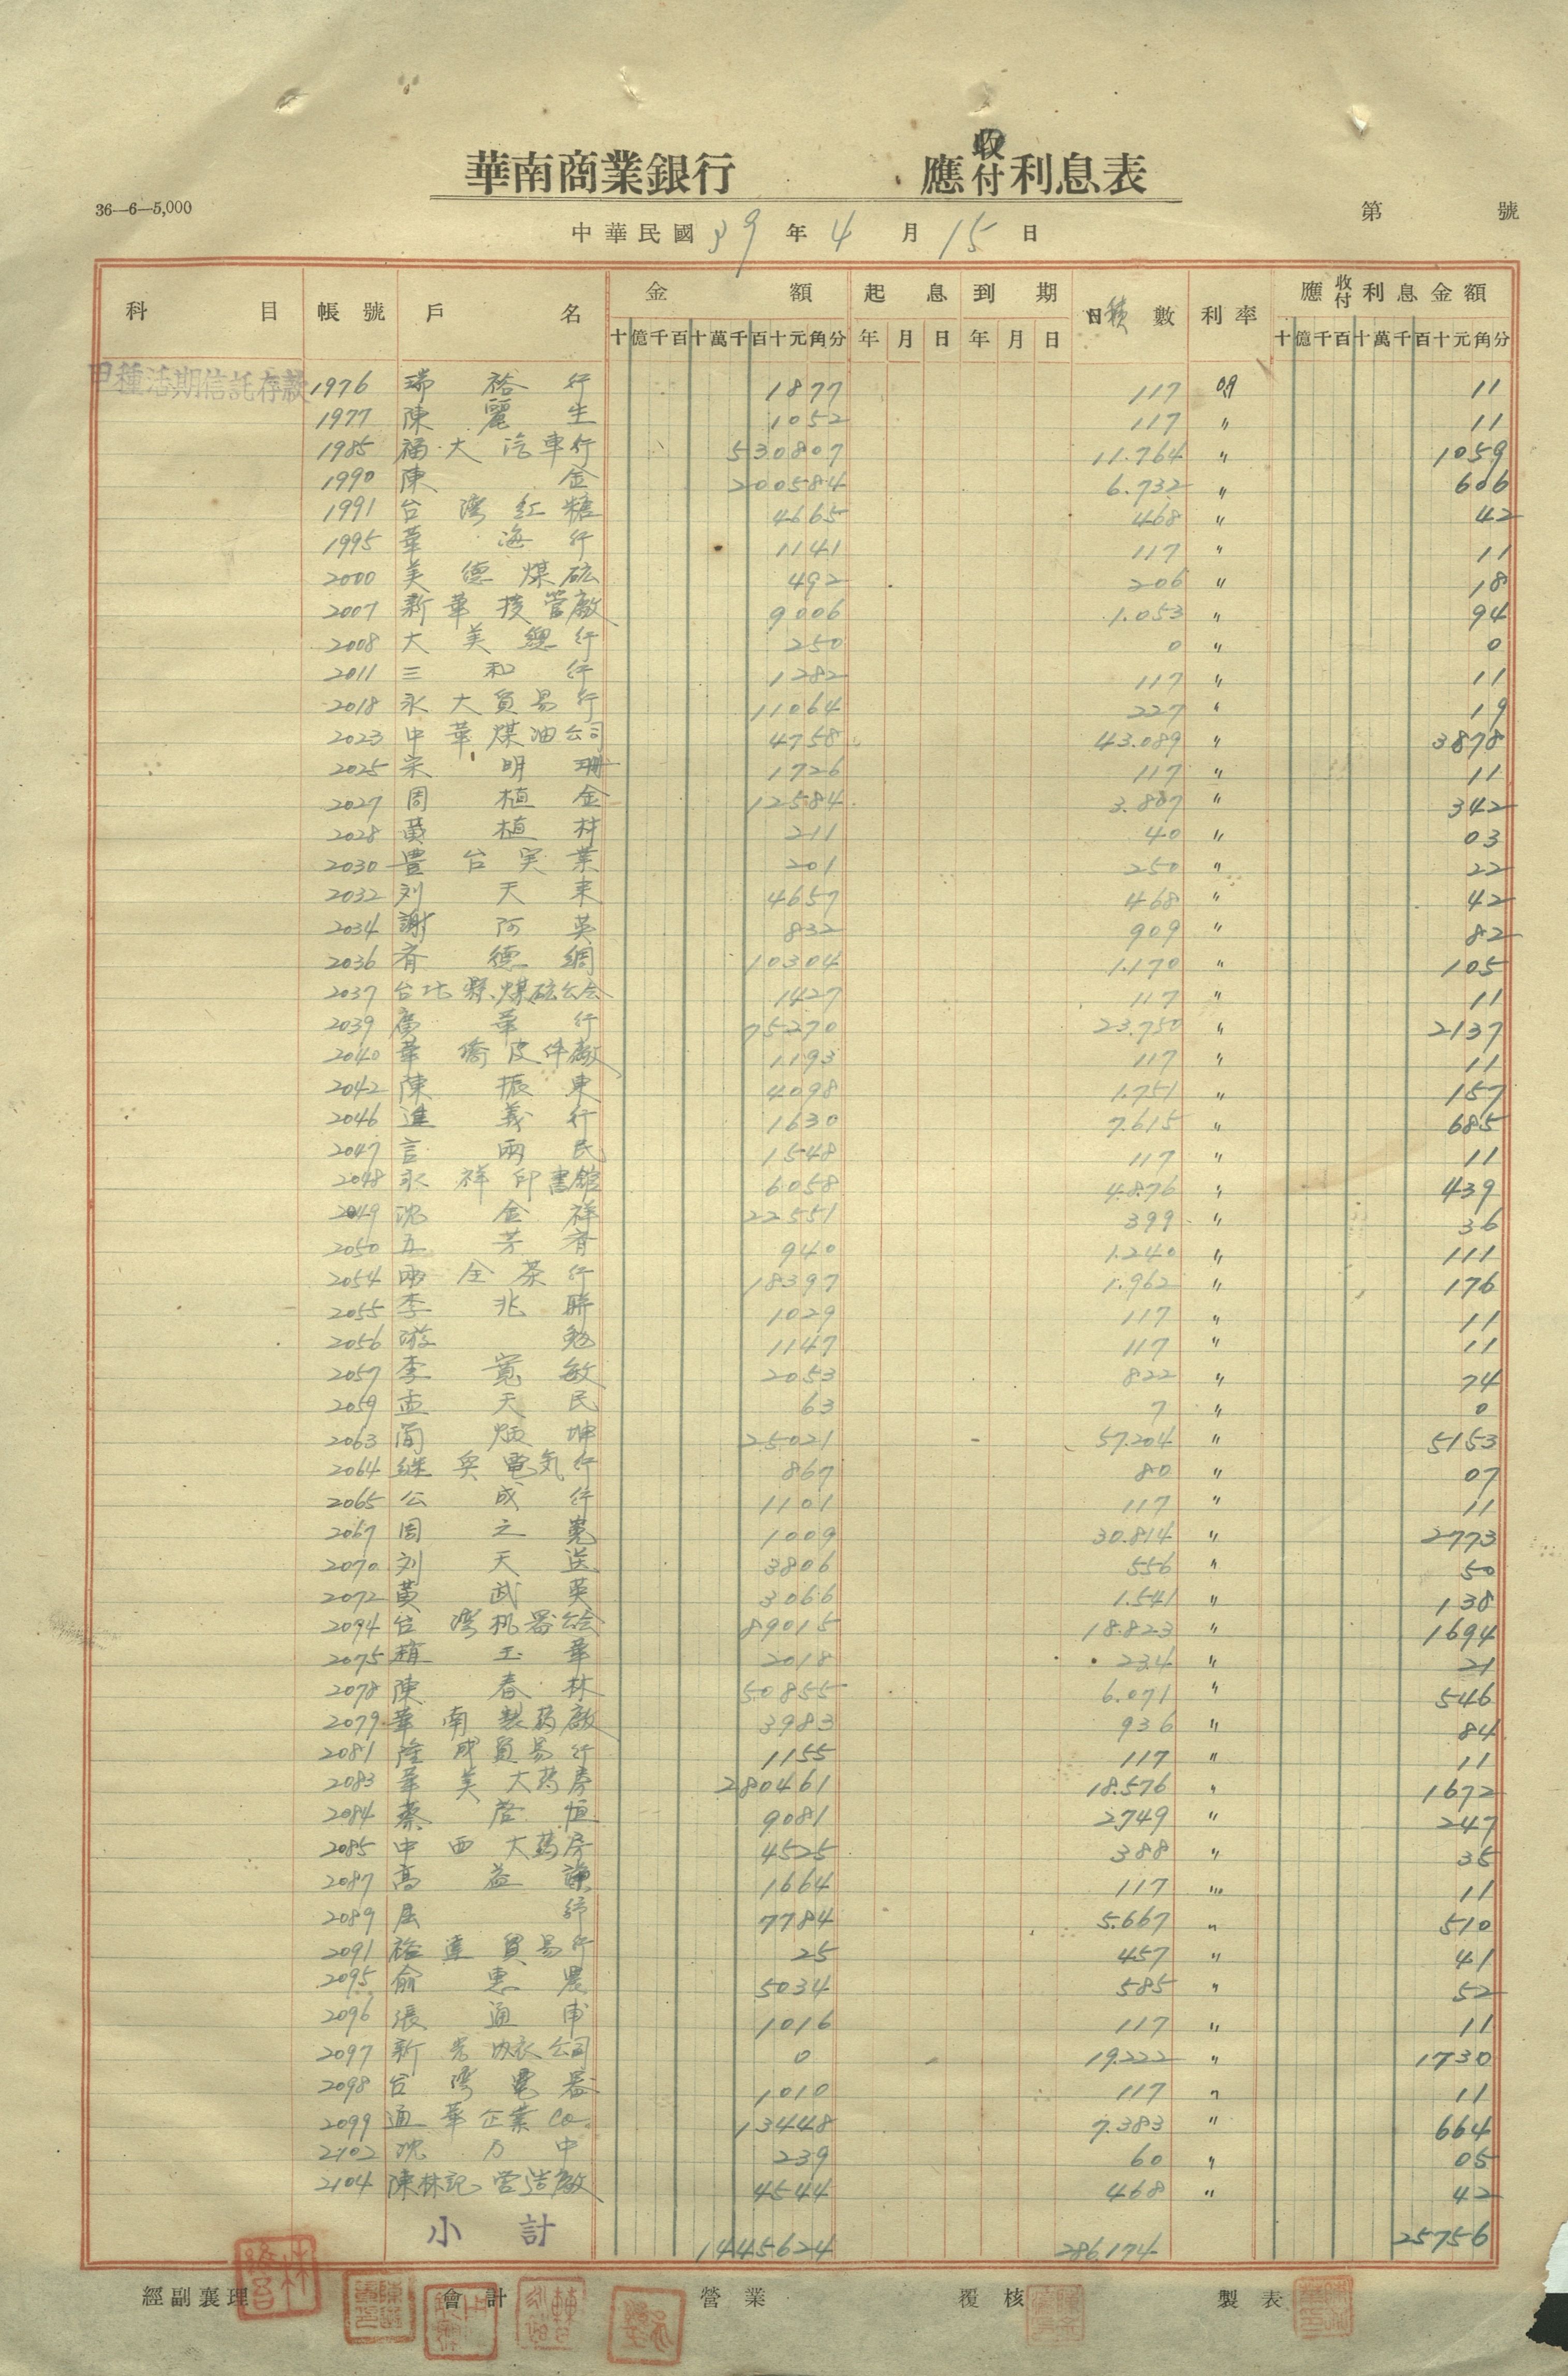 華南商業銀行 應收付利息表
36—6—5,000
第 號
中華民國39年4月15日
科目 帳號 戶名 金額 起息 到期 日積數 利率 應收付利息金額
十億千百十萬千百十元角分 年月日 年月日 十億千百十萬千百十元角分
甲種活期信託存款 1976 瑞裕行 1877 117 09 11
1977 陳麗生 1052 117 〃 11
1985 福大汽車行 530807 11.764 〃 1059
1990 陳金 200584 6.732 〃 606
1991 台灣紅糖 4665 468 〃 42
1995 華海行 1141 117 〃 11
2000 美德煤砿 492 206 〃 18
2007 新華營廠 9006 1.053 〃 94
2008 大美行 250 0 〃 0
2011 三和行 1282 117 〃 11
2018 永大貿易行 11064 227 〃 19
2023 中華煤油公司 4758 43.089 〃 3878
2025 宋明珊 1726 117 〃 11
2027 周植金 12584 3.807 〃 342
2028 黃植材 211 40 〃 03
2030 豊台実業 201 250 〃 22
2032 刘天来 4657 468 〃 42
2034 謝阿英 832 909 〃 82
2036 齐德綢 10304 1.170 〃 105
2037 台北縣煤砿公会 1427 117 〃 11
2039 廣華行 75270 23.750 〃 2137
2040 華僑皮件廠 1193 117 〃 11
2042 陳振東 4098 1.751 〃 157
2046 進義行 1630 7.615 〃 685
2047 言雨民 1548 117 〃 11
2048 永祥印書館 6058 4.876 〃 439
2049 沈金祥 22551 399 〃 36
2050 五芳齐 940 1.240 〃 111
2054 雨全茶行 18397 1.962 〃 176
2055 李兆聯 1029 117 〃 11
2056 1147 117 〃 11
2057 李寬敏 2053 822 〃 74
2059 孟天民 63 7 〃 0
2063 簡炳坤 25021 57.204 〃 5153
2064 継興電気行 867 80 〃 07
2065 公成行 1101 117 〃 11
2067 周之冕 1009 30.814 〃 2773
2070 刘天送 3806 556 〃 50
2072 黃武英 3066 1.541 〃 138
2094 台灣机器公会 89015 18.823 〃 1694
2075 趙玉華 2018 234 〃 21
2078 陳春林 50855 6.071 〃 546
2079 華南製葯廠 3983 936 〃 84
2081 隆成貿易行 1155 117 〃 11
2083 華美大葯房 280461 18.576 〃 1672
2084 蔡啓恒 9081 2749 〃 247
2085 中西大葯房 4525 388 〃 35
2087 高益謙 1664 117 〃 11
2089 屈 7784 5.667 〃 510
2091 裕達貿易行 25 457 〃 41
2095 俞惠農 5034 585 〃 52
2096 張通甫 1016 117 〃 11
2097 新光内衣公司 0 19.222 〃 1730
2098 台灣電器 1010 117 〃 11
2099 通華企業Co. 13448 7.383 〃 664
2102 沈乃中 239 60 〃 05
2104 陳林記營造廠 4544 468 〃 42
小計 1445624 286.174 25756
經副襄理 會計 營業 覆核 製表